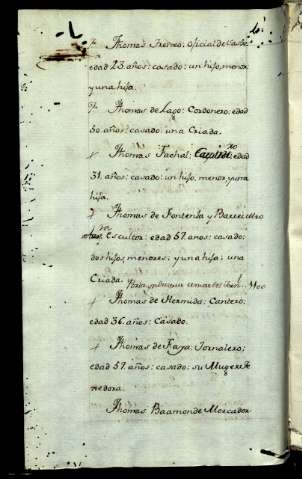 Thomas Ferreo: oficial de Sastre
edad 23. años: casado: un hijo, menor
y una hija.
Thomas de Lago: Cordonero: edad
50. años: casado: una Criada.
Thomas Fachal: edad
31. años: casado: un hijo, menor, y una
hija.
Thomas de Fontenla y Barreiro
Escultor: edad 57. años: casado:
dos hijos, menores: y una hija: una
Criada.
Thomas de Hermida: Cantero:
edad 36. años: Casado.
Thomas de Raya: Jornalero:
edad 57. años: casado: su Muger Te
nedora.
Thomas Baamonde Mercader